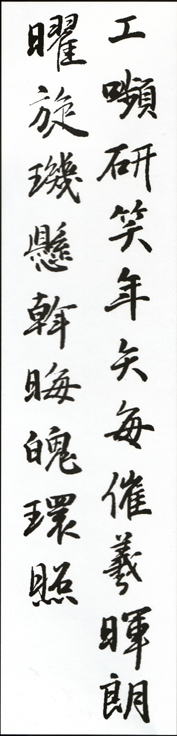 工嚬研笑年矢每催羲暉朗
曜旋璣懸斡晦魄環照